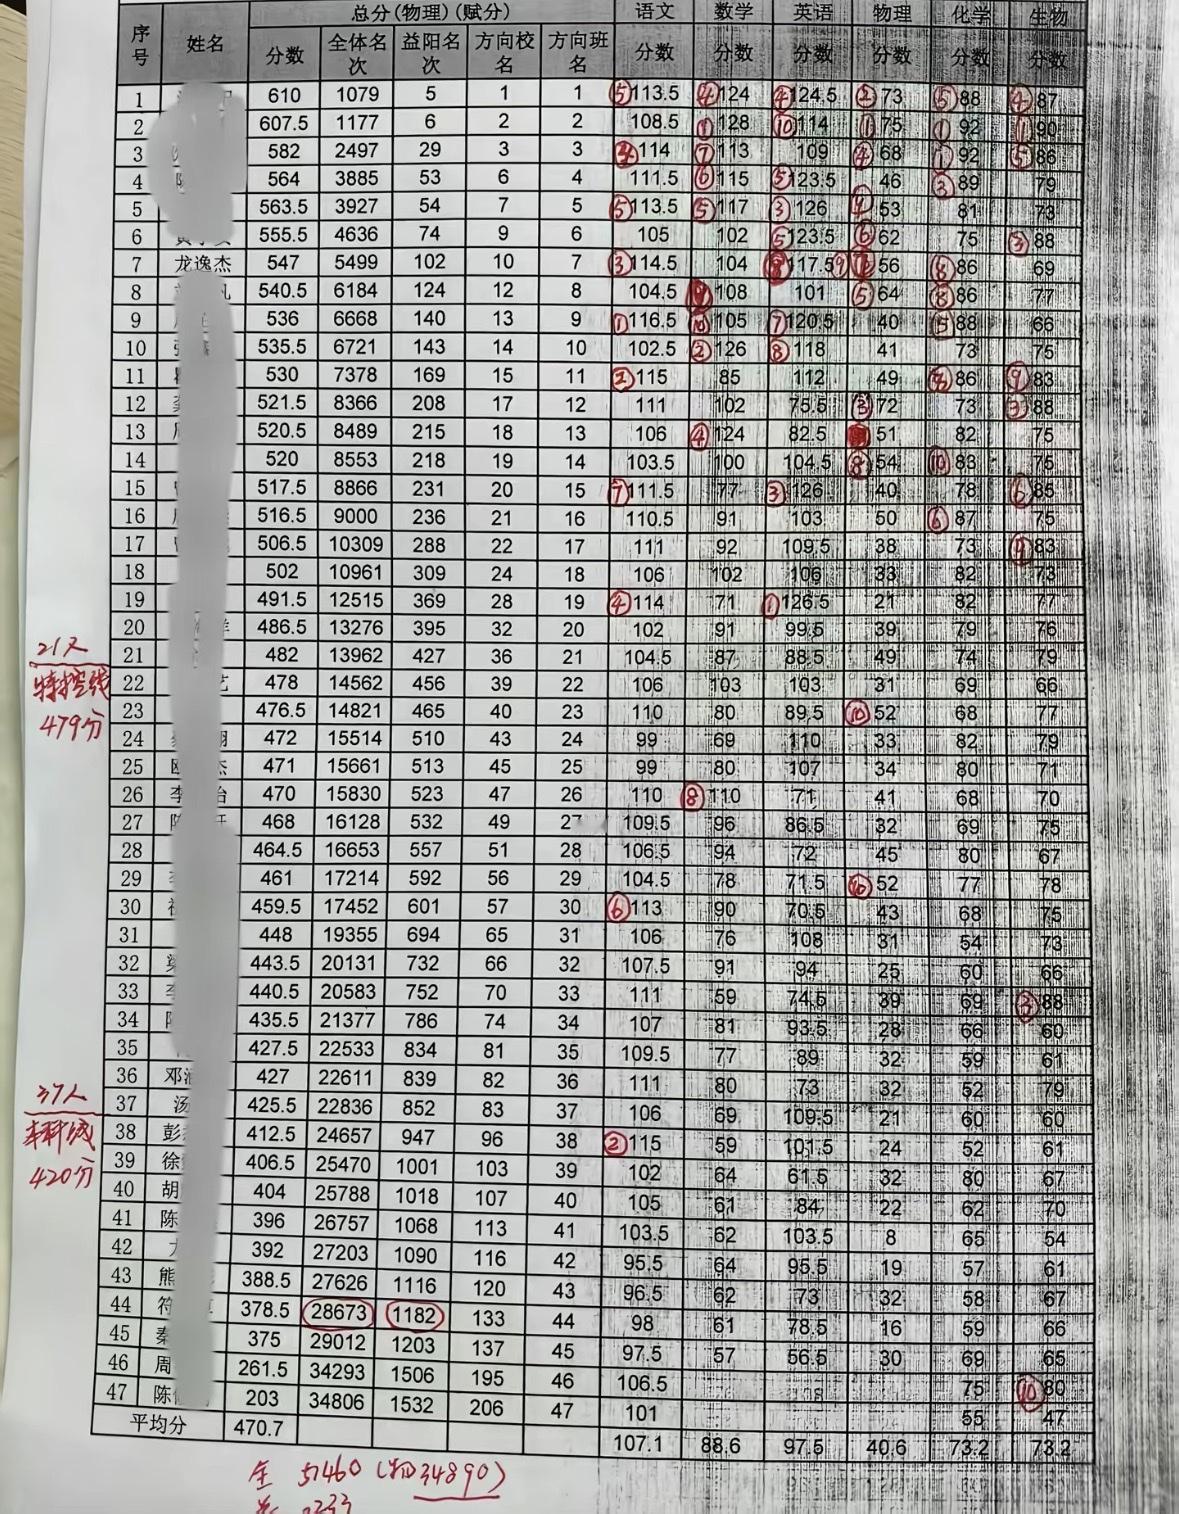 总分(物理)(赋分) 语文 数学 英语 物理 化学 生物
序号 姓名 分数 全体名次 益阳名次 方向校名 方向班名 分数 分数 分数 分数 分数 分数
1 610 1079 5 1 1 ⑤113.5 ④124 ④124.5 ②73 ⑤88 ④87
2 607.5 1177 6 2 2 108.5 ①128 ⑩114 ①75 ①92 ①90
3 582 2497 29 3 3 114 ⑦113 109 ④68 ①92 ⑤86
4 564 3885 53 6 4 111.5 ⑥115 ⑤123.5 46 ③89 79
5 563.5 3927 54 7 5 ⑤113.5 ⑤117 ③126 53 81 73
6 555.5 4636 74 9 6 105 102 ⑤123.5 ⑥62 75 ③88
7 龙逸杰 547 5499 102 10 7 ③114.5 104 117.5 56 ⑧86 69
8 540.5 6184 124 12 8 104.5 108 101 ⑤64 ⑧86 77
9 536 6668 140 13 9 ①116.5 ⑩105 ⑦120.5 40 ⑤88 66
10 535.5 6721 143 14 10 102.5 ②126 ⑧118 41 73 75
11 530 7378 169 15 11 ②115 85 112 49 86 ⑨83
12 521.5 8366 208 17 12 111 102 75.5 ③72 73 ③88
13 520.5 8489 215 18 13 106 ④124 82.5 51 82 75
14 520 8553 218 19 14 103.5 100 104.5 ⑧54 ⑩83 75
15 517.5 8866 231 20 15 ⑦111.5 77 ③126 40 78 ⑥85
16 516.5 9000 236 21 16 110.5 91 103 50 ⑥87 75
17 506.5 10309 288 22 17 111 92 109.5 38 73 ⑨83
18 502 10961 309 24 18 106 102 106 33 82 73
19 491.5 12515 369 28 19 ④114 71 ①126.5 21 82 77
20 486.5 13276 395 32 20 102 91 99.5 39 79 76
21人
21 482 13962 427 36 21 104.5 87 88.5 49 74 79
特控线
22 478 14562 456 39 22 106 103 103 31 69 66
479分
23 476.5 14821 465 40 23 110 80 89.5 ⑩52 68 77
24 472 15514 510 43 24 99 69 110 33 82 79
25 杰 471 15661 513 45 25 99 80 107 34 80 71
26 李 470 15830 523 47 26 110 ⑧110 71 41 68 70
27 468 16128 532 49 27 109.5 96 86.5 32 69 75
28 464.5 16653 557 51 28 106.5 94 72 45 80 67
29 461 17214 592 56 29 104.5 78 71.5 ⑩52 77 78
30 459.5 17452 601 57 30 ⑥113 90 70.5 43 68 75
31 448 19355 694 65 31 106 76 108 31 54 73
32 443.5 20131 732 66 32 107.5 91 94 25 60 66
33 440.5 20583 752 70 33 111 59 74.5 39 69 ③88
34 435.5 21377 786 74 34 107 81 93.5 28 66 60
35 427.5 22533 834 81 35 109.5 77 89 32 59 61
36 邓 427 22611 839 82 36 111 80 73 32 52 79
37人
37 汤 425.5 22836 852 83 37 106 69 109.5 21 60 60
本科线
38 彭 412.5 24657 947 96 38 ②115 59 101.5 24 52 61
420分
39 徐 406.5 25470 1001 103 39 102 64 61.5 32 80 67
40 胡 404 25788 1018 107 40 105 61 84 22 62 70
41 陈 396 26757 1068 113 41 103.5 62 103.5 8 65 54
42 392 27203 1090 116 42 95.5 64 95.5 19 57 61
43 熊 388.5 27626 1116 120 43 96.5 62 73 32 58 67
44 符 378.5 28673 1182 133 44 98 61 78.5 16 59 66
45 秦 375 29012 1203 137 45 97.5 57 56.5 30 69 65
46 周 261.5 34293 1506 195 46 106.5 75 ⑩80
47 陈 203 34806 1532 206 47 101 55 47
平均分 470.7 107.1 88.6 97.5 40.6 73.2 73.2
全 51460 (物34890)